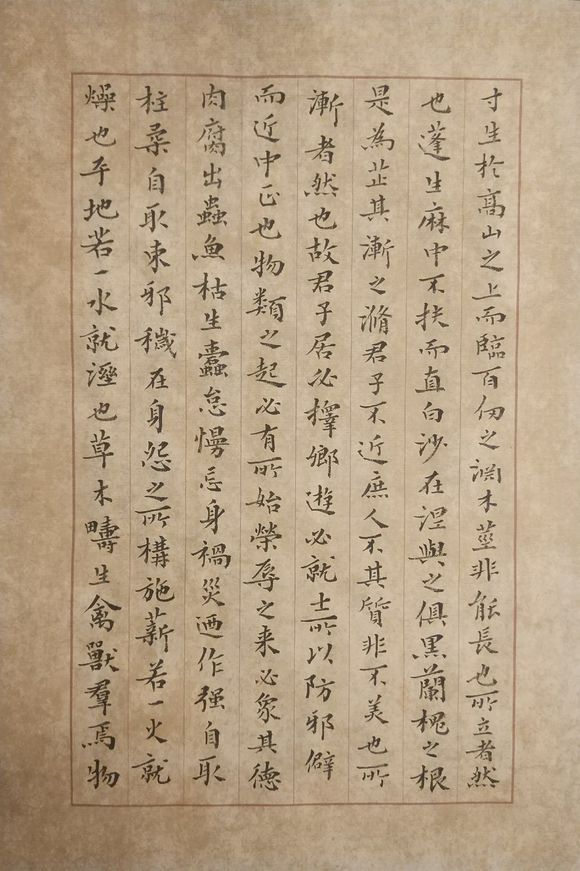 寸生於高山之上而臨百仞之淵木莖非能長也所立者然
也蓬生麻中不扶而直白沙在涅與之俱黑蘭槐之根
是為芷其漸之滫君子不近庶人不其質非不美也所
漸者然也故君子居必擇鄉遊必就士所以防邪僻
而近中正也物類之起必有所始榮辱之来必象其德
肉腐出蟲魚枯生蠹怠慢忘身禍災迺作强自取
柱桑自取束邪穢在身怨之所構施薪若一火就
燥也平地若一水就溼也草木疇生禽獸羣焉物